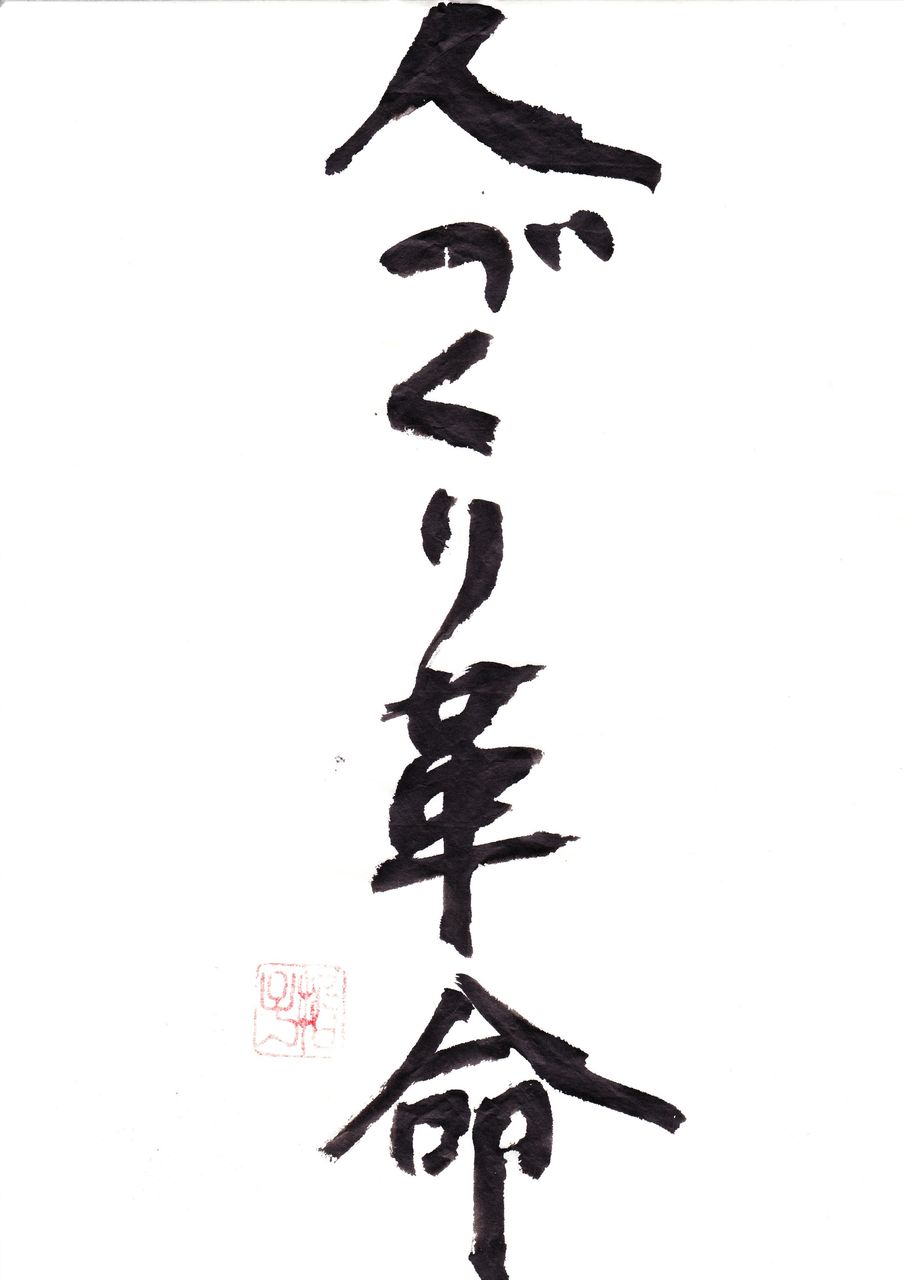 人づくり革命